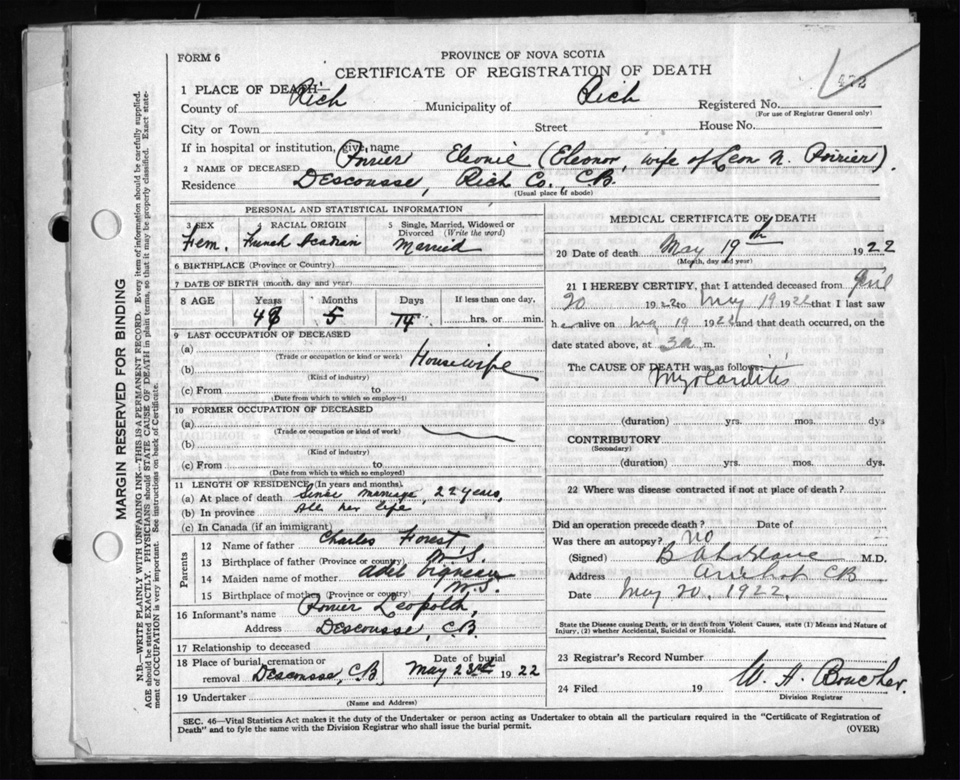 FORM 6
PROVINCE OF NOVA SCOTIA
CERTIFICATE OF REGISTRATION OF DEATH
1 PLACE OF DEATH—
County of Rich Municipality of Rich Registered No.
(For use of Registrar General only)
City or Town Street House No.
If in hospital or institution, give name
2 NAME OF DECEASED Poirier Eleonie (Eleonor, wife of Leon N. Poirier).
Residence Descousse, Rich Co., C.B.
(Usual place of abode)
PERSONAL AND STATISTICAL INFORMATION
3 SEX RACIAL ORIGIN 5 Single, Married, Widowed or
Divorced (Write the word)
Fem. French Acadian Married
6 BIRTHPLACE (Province or Country)
7 DATE OF BIRTH (month, day and year)
8 AGE Years Months Days If less than one day,
5 14 hrs. or min.
9 LAST OCCUPATION OF DECEASED
(a)
(Trade or occupation or kind of work) Housewife
(b)
(Kind of industry)
(c) From to
(Date from which to which so employed)
10 FORMER OCCUPATION OF DECEASED
(a)
(Trade or occupation or kind of work)
(b)
(Kind of industry)
(c) From to
(Date from which to which so employed)
11 LENGTH OF RESIDENCE (In years and months).
(a) At place of death Since marriage, 22 years,
(b) In province All her life
(c) In Canada (if an immigrant)
Parents
12 Name of father Charles Forest
13 Birthplace of father (Province or country) N.S
14 Maiden name of mother Adel
15 Birthplace of mother (Province or country) N.S.
16 Informant's name Poirier Leopold,
Address Descousse, C.B.
17 Relationship to deceased
18 Place of burial, cremation or Date of burial
removal Descousse, C.B. May 23rd 1922
19 Undertaker
(Name and Address)
MEDICAL CERTIFICATE OF DEATH
20 Date of death May 19th 1922
(Month, day and year)
21 I HEREBY CERTIFY, that I attended deceased from
20 1922 to May 19 1922 that I last saw
her alive on May 19 1922 and that death occurred, on the
date stated above, at 3a m.
The CAUSE OF DEATH was as follows:
Myocarditis
(duration) yrs. mos. dys
CONTRIBUTORY
(Secondary)
(duration) yrs. mos. dys.
22 Where was disease contracted if not at place of death?
Did an operation precede death? Date of
Was there an autopsy? no
(Signed) M.D.
Address Arichat CB
Date May 20, 1922.
State the Disease causing Death, or in death from Violent Causes, state (1) Means and Nature of
Injury, (2) whether Accidental, Suicidal or Homicidal.
23 Registrar's Record Number
24 Filed 19 W. H. Boucher.
Division Registrar
SEC. 46—Vital Statistics Act makes it the duty of the Undertaker or person acting as Undertaker to obtain all the particulars required in the "Certificate of Registration of
Death" and to fyle the same with the Division Registrar who shall issue the burial permit. (OVER)
MARGIN RESERVED FOR BINDING
N.B—WRITE PLAINLY WITH UNFADING INK—THIS IS A PERMANENT RECORD. Every item of information should be carefully supplied.
AGE should be stated EXACTLY. PHYSICIANS should STATE CAUSE OF DEATH in plain terms, so that it may be properly classified. Exact state-
ment of OCCUPATION is very important. See instructions on back of Certificate.